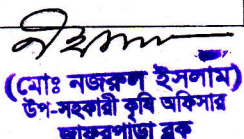 (মোঃ নজরুল ইসলাম)
উপ-সহকারী কৃষি অফিসার
জাফরপাড়া ব্লক